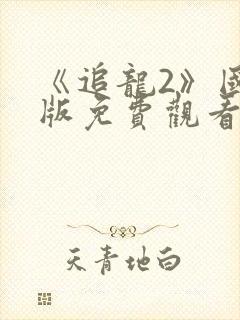 《追龍2》國
版免費觀看
天青地白